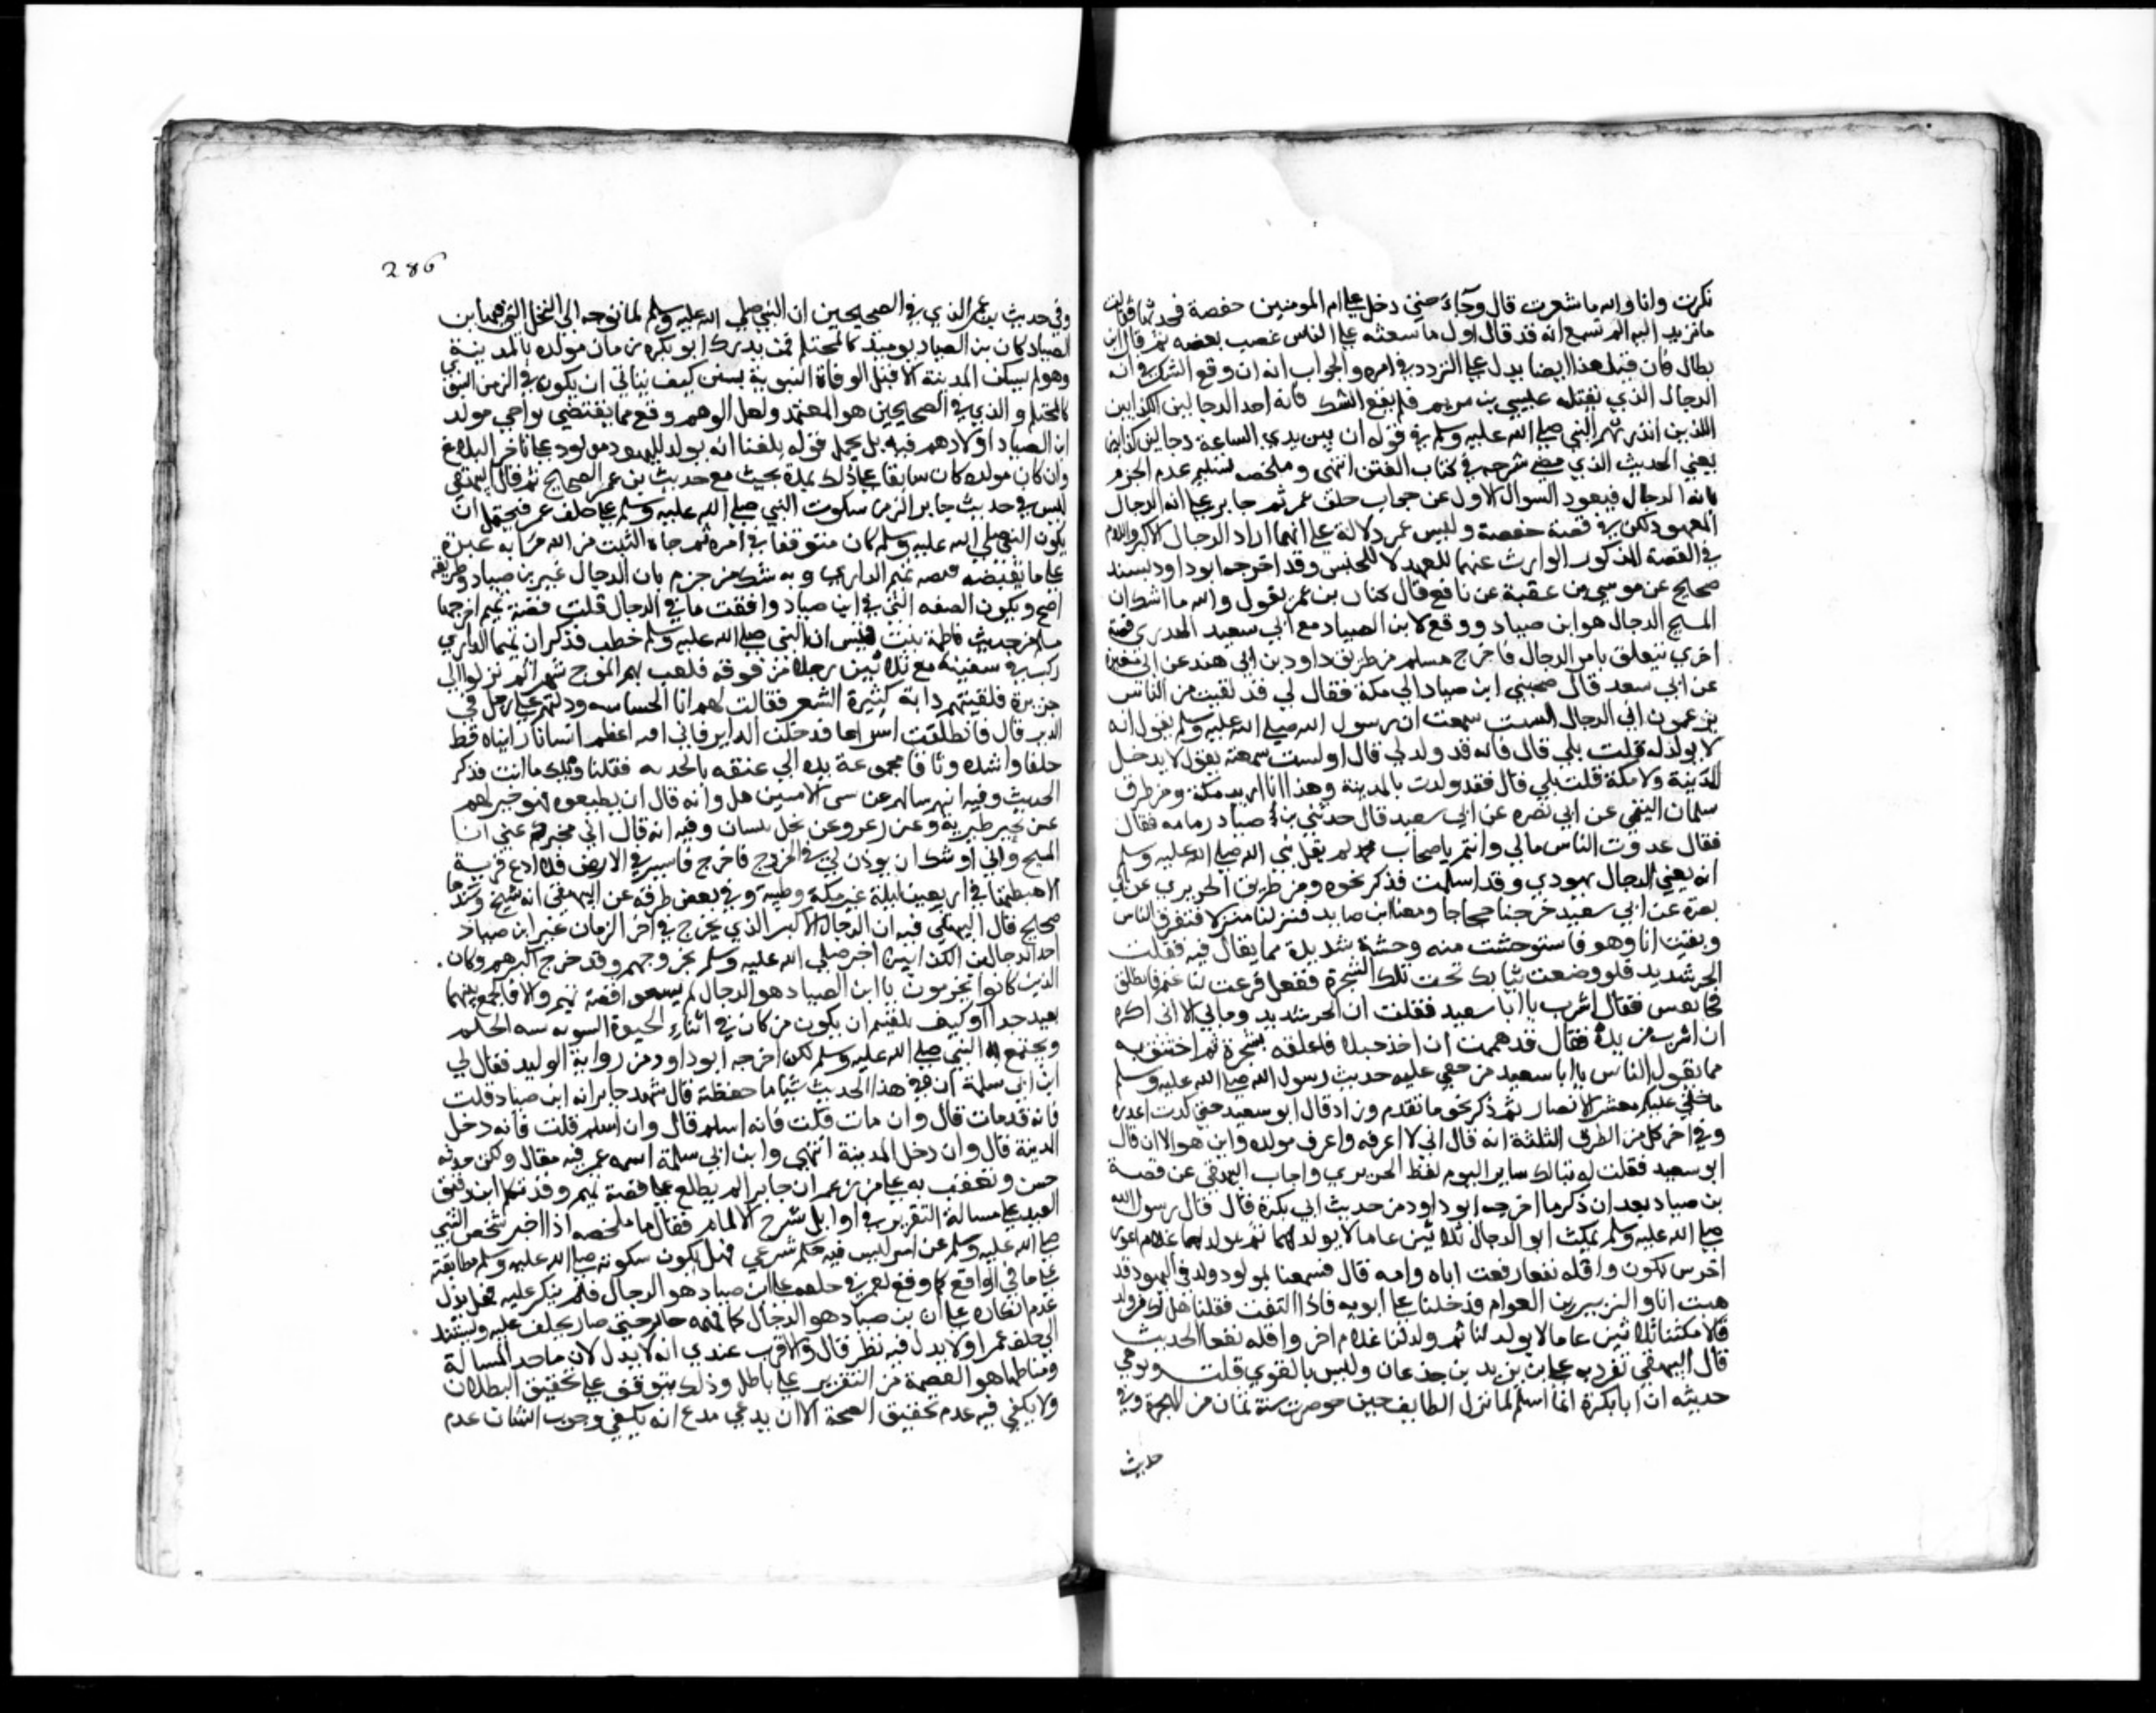 تكرت وانا والله ما شعرت قال وجاء حتى دخل على ام المومنين حفصة فحدثها فقالت
ما تريد اليه الم تسمع انه قد قال اول ما يبعثه على الناس غضب يغضبه ثم قال ابن
بطال فان قيل هذا ايضا يدل على التردد في امره والجواب انه ان وقع الشك في انه
الدجال الذي يقتله عيسى بن مريم فلم يقع الشك فانه احد الدجالين الكذابين
اللذين انذر بهم النبي صلى الله عليه وسلم في قوله ان بين يدي الساعة دجالين كذابين
يعني الحديث الذي مضى شرحه في كتاب الفتن انتهى وملخصه تسليم عدم الجزم
بانه الدجال فيعود السوال الاول عن جواب حلف عمر ثم جابر على انه الدجال
المعهود لكن في قصة حفصة وليس عمر دلالة على انهما اراد الدجال الاكبر واللام
في القصة المذكور الوارث عنهما للعهد لا للجنس وقد اخرجه ابوداود بسند
صحيح عن موسى بن عقبة عن نافع قال كنان بن عمر يقول والله ما اشك ان
المسيح الدجال هو ابن صياد ووقع لابن الصياد مع ابي سعيد الخدري قصة
اخرى تتعلق بامر الدجال فاخرج مسلم من طريق داود بن ابي هند عن ابي نضرة
عن ابي سعد قال صحبني ابن صياد الى مكة فقال لي قد لقيت من الناس
يزعمون اني الدجال الست سمعت ان رسول الله صلى الله عليه وسلم يقول انه
لا يولد له قلت بلى قال فانه قد ولد لي قال اولست سمعته يقول لا يدخل
المدينة ولا مكة قلت بلى قال فقد ولدت بالمدينة وهذا انا اريد مكة ومن طرق
سلمان التيمي عن ابي نضره عن ابي سعيد قال حدثني بن صياد فقال
فقال عدوت الناس مالي وانتم يا صحاب محمد لم يقل نبي الله صلى الله عليه وسلم
انه يعني الدجال يهودي وقد اسلمت فذكر نحوه ومن طريق الجريري عن ابي
نضرة عن ابي سعيد خرجنا حجاجا ومعنا ابن صايد فنزلنا منزلا فتفرق الناس
وبقيت انا وهو فاستوحشت منه وحشة شديدة مما يقال فيه فقلت
الحر شديد فلو وضعت ثيابك تحت تلك الشجرة ففعل فرعت لنا غنم فانطلق
فجا بعس فقال اشرب يا ابا سعيد فقلت ان الحر شديد وما بي الا اني اكره
ان اشرب من يده فقال قد هممت ان اخذ حبلا فاعلقه بشجرة ثم اختنق به
مما يقول الناس يا ابا سعيد من خفي عليه حديث رسول الله صلى الله عليه وسلم
ما خفي عليكم معشر الانصار ثم ذكر نحو ما تقدم وزاد قال ابو سعيد حتى كدت اعذره
وفي اخر كل من الطرق الثلثة انه قال اني لا اعرفه واعرف مولده واين هو الان قال
ابو سعيد فقلت له تبا لك ساير اليوم لفظ الجريري واجاب البيهقي عن قصة
بن صياد بعد ان ذكر ما اخرجه ابو داود من حديث ابي بكرة قال قال رسول الله
صلى الله عليه وسلم يمكث ابو الدجال ثلاثين عاما لا يولد لهما ثم يولد لهما غلام اعور
اخرس لكون واقله نفعا ونعت اباه وامه قال فسمعنا بمولود ولد في اليهود قد
هبت انا والزبير بن العوام فدخلنا على ابويه فاذا التفت فقلنا هل لكما من ولد
قالا مكثنا ثلاثين عاما لا يولد لنا ثم ولد لنا غلام اخر واقله نفعا الحديث
قال البيهقي تفرد به علي بن زيد بن جدعان وليس بالقوي قلت ويوهي
حديثه ان ابا بكرة انما اسلم لما نزل الطايف حين حوصرت سنة ثمان من الهجرة وفي
حديث
286
وفي حديث بن عمر الذي في الصحيحين ان النبي صلى الله عليه وسلم لما توجه الى النخل التي فيها ابن
الصياد كان بن الصياد يوميذ كالمحتلم فمتى يدرك ابو بكره زمان مولده بالمدينة
وهو لم يسكن المدينة الا قبل الوفاة النبوية بسنتين كيف يتاتى ان يكون في الزمن النبوي
كالمحتلم والذي في الصحيحين هو المعتمد ولعل الوهم وقع مما يقتضي تواخي مولد
ابن الصياد اولا وهم فيه بل يحمل قوله بلغنا انه يولد لليهود مولود على تاخر البلاغ
وان كان مولده كان سابقا على ذلك بمدة بحيث مع حديث بن عمر الصحيح ثم قال البيهقي
ليس في حديث جابر اكثر من سكوت النبي صلى الله عليه وسلم على حلف عمر فيحتمل ان
يكون النبي صلى الله عليه وسلم كان متوقفا في امره ثم جاه الثبت من الله تعالى بانه غيره
على ما تقتضيه قصه تميم الداري وبه تمسك من جزم بان الدجال غير بن صياد وطريقه
اصح ويكون الصفه التي في ابن صياد وافقت ما في الدجال قلت قصة تميم اخرجها
مسلم من حديث فاطمة بنت قيس ان النبي صلى الله عليه وسلم خطب فذكر ان تميما الداري
ركب في سفينة مع ثلاثين رجلا من قومه فلعب بهم الموج شهرا ثم نزلوا الى
جزيرة فلقيتهم دابة كثيرة الشعر فقالت لهم انا الجساسه ودلتهم على رجل في
الدير قال فانطلقت سراعا فدخلت الدير فاني فيه اعظم انسانا رايناه قط
خلقا واشده وثاقا مجموعة يده الى عنقه بالحديد فقلنا ويلك ما انت فذكر
الحديث وفيه انهم سالهم عن نبي الاميين هل وانه قال ان يطيعوه فهو خير لهم
عن بحير طبرية وعن زعر وعن نخل بيسان وفيه انه قال اني مخبركم عني انا
المسيح واني اوشك ان يوذن لي في الخروج فاخرج فاسير في الارض فلا ادع قرية
الا هبطتها في اربعين ليلة غير مكة وطيبة وفي بعض طرقه عن البيهقي انه شيخ وسندها
صحيح قال البيهقي فيه ان الدجال الاكبر الذي يخرج في اخر الزمان غير ابن صياد
احد الدجالين الكذابين اخبر صلى الله عليه وسلم بخروجهم وقد خرج اكبرهم وكان
الذين كانوا يجزمون بان ابن الصياد هو الدجال لم يسمعوا قصة تميم والا فالجمع بينهما
بعيد جدا او كيف يلتئم ان يكون من كان في اثناء الحيوة النبويه شبه المحتلم
ويجتمع به النبي صلى الله عليه وسلم لكن اخرجه ابو داود من رواية الوليد فقال لي
ابن ابي سلمة ان في هذا الحديث شيا ما حفظته قال شهد جابر انه ابن صياد قلت
فانه قد مات قال وان مات قلت فانه اسلم قال وان اسلم قلت فانه دخل
المدينة قال وان دخل المدينة انتهى وابن ابي سلمة اسمه عمر فيه مقال ولكن حديثه
حسن وتعقب به على من زعم ان جابرا لم يطلع على قصة تميم وقد تكلم ابن دقيق
العيد على مسالة التقرير في اوايل شرح الالمام فقال ما ملخصه اذا اخبر شخص النبي
صلى الله عليه وسلم عن امر ليس فيه حكم شرعي فهل يكون سكوته صلى الله عليه وسلم مطابقته
على ما في الواقع كما وقع لعمر في حلفه على ابن صياد هو الدجال فلم ينكر عليه فهل يدل
عدم انكاره على ان بن صياد هو الدجال كما فهمه جابر حتى صار يحلف عليه ويستند
الى حلف عمر او لا يدل فيه نظر قال والاقرب عندي انه لا يدل لان ماخذ المسالة
ومناطها هو العصمة من التقرير على باطل وذلك يتوقف على تحقيق البطلان
ولا يكفي فيه عدم تحقيق الصحة الا ان يدعي مدع انه يكفي وجوب البيان عدم